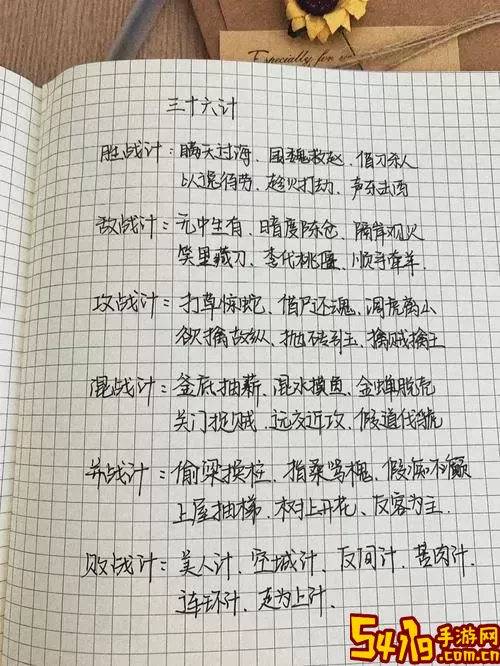 Especially for
三十六计
胜战计：瞒天过海、围魏救赵、借刀杀人
以逸待劳、趁火打劫、声东击西
敌战计：无中生有、暗度陈仓、隔岸观火
笑里藏刀、李代桃僵、顺手牵羊.
攻战计：打草惊蛇、借尸还魂、调虎离山
欲擒故纵、抛砖引玉、擒贼擒王
混战计：釜底抽薪、混水摸鱼、金蝉脱壳
关门捉贼、远交近攻、假道伐虢
并战计：偷梁换柱、指桑骂槐、假痴不癫
上屋抽梯、树上开花、反客为主.
败战计：美人计、空城计、反间计、苦肉计、
连环计、走为上计.
5479手游网
.com.cn